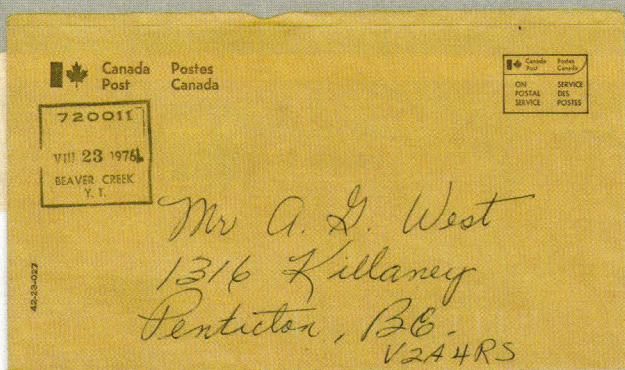 Canada Post Postes Canada
Canada Post Postes Canada
ON POSTAL SERVICE SERVICE DES POSTES
720011
VIII 23 1976
BEAVER CREEK
Y. T.
Mr A. G. West
1316 Killaney
Penticton, BC.
V2A4R5
42-23-027